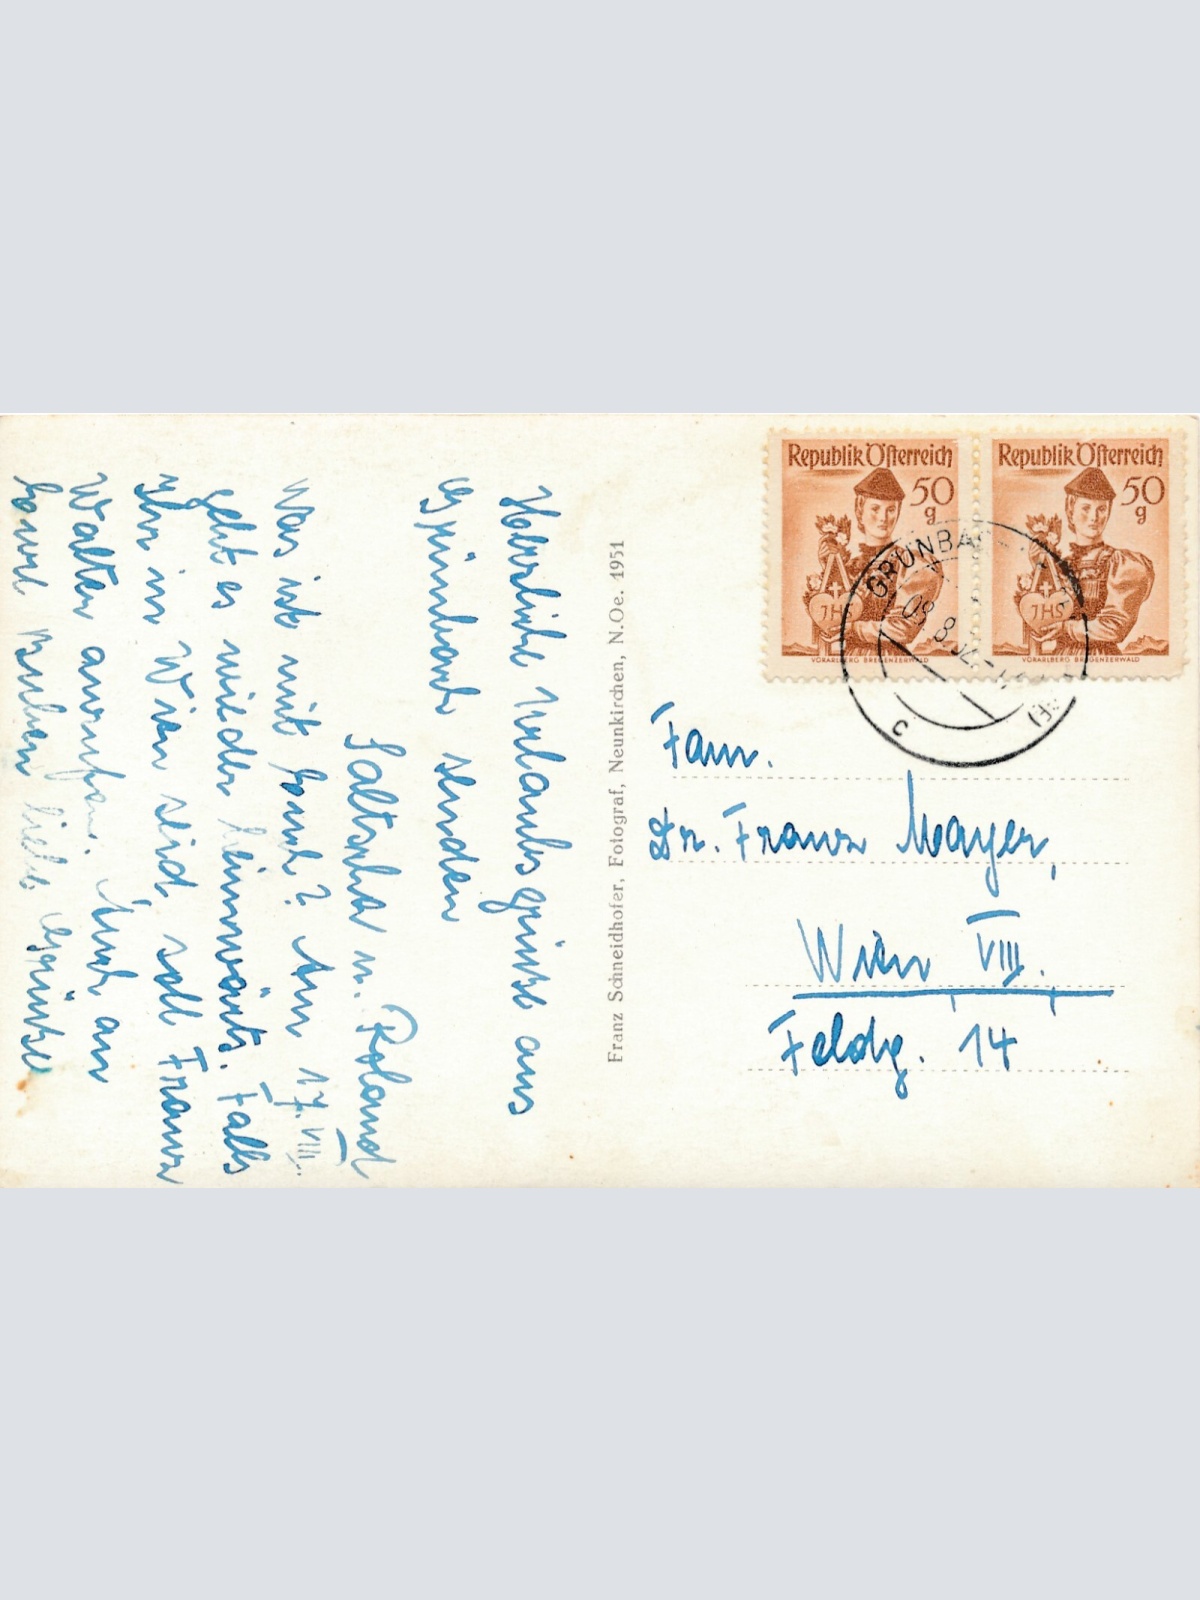 Herrliche Urlaubsgrüße aus
Grünbach senden
u. Roland
Was ist mit Horst? Am 17. VIII.
geht es wieder heimwärts. Falls
Ihr in Wien seid, soll Franz
Walter anrufen. Auch an
Buben liebe Grüße
Franz Schneidhofer, Fotograf, Neunkirchen, N.Oe. 1951
Republik Österreich
50
g
JHS
VORARLBERG BREGENZERWALD
Republik Österreich
50
g
JHS
VORARLBERG BREGENZERWALD
c
Fam.
Dr. Franz Mayer,
Wien VIII.
Feldg. 14